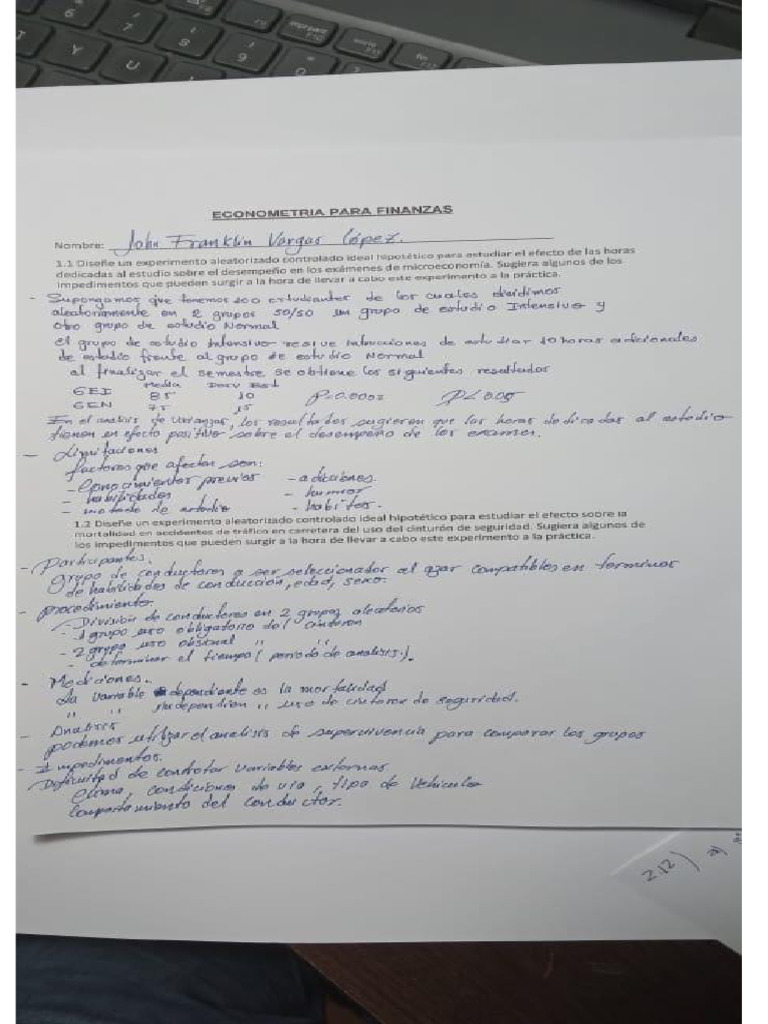 ECONOMETRIA PARA FINANZAS
Nombre: John Franklin Vargas López.
1.1 Diseñe un experimento aleatorizado controlado ideal hipotético para estudiar el efecto de las horas
dedicadas al estudio sobre el desempeño en los exámenes de microeconomía. Sugiera algunos de los
impedimentos que pueden surgir a la hora de llevar a cabo este experimento a la práctica.
- Supongamos que tenemos 200 estudiantes de los cuales dividimos
aleatoriamente en 2 grupos 50/50 un grupo de estudio Intensivo y
otro grupo de estudio Normal
el grupo de estudio Intensivo recive de estudiar 10 horas adicionales
de estudio frente al grupo de estudio Normal
al finalizar el semestre se obtiene los siguientes resultados
Media Desv Est
GEI 85 10 P=0.0000 P<0.05
GEN 75 15
En el analisis de Varianzas, los resultados sugieren que las horas dedicadas al estudio
tienen un efecto positivo sobre el desempeño de los examenes.
-
factores que afectan son:
- conocimientos previos - adicciones.
- habilidades - humor
- metodo de estudio - habitos.
1.2 Diseñe un experimento aleatorizado controlado ideal hipotético para estudiar el efecto sobre la
mortalidad en accidentes de tráfico en carretera del uso del cinturón de seguridad. Sugiera algunos de
los impedimentos que pueden surgir a la hora de llevar a cabo este experimento a la práctica.
- Participantes.
grupo de conductores a ser seleccionador al azar compatibles en terminos
de habilidades de conducción, edad, sexo.
- procedimiento.
- División de conductores en 2 grupos aleatorios
- 1 grupo uso obligatorio del cinturon
- 2 grupo uso " "
- determinar el tiempo (periodo de analisis).
- Mediciones.
La variable dependiente es la mortalidad
" " " uso de de seguridad.
- Analisis
podemos utilizar el analisis de supervivencia para comparar los grupos
- Impedimentos.
Dificultad de controlar variables externas
clima, condiciones de via, tipo de vehiculo
comportamiento del conductor.
2.12) a)